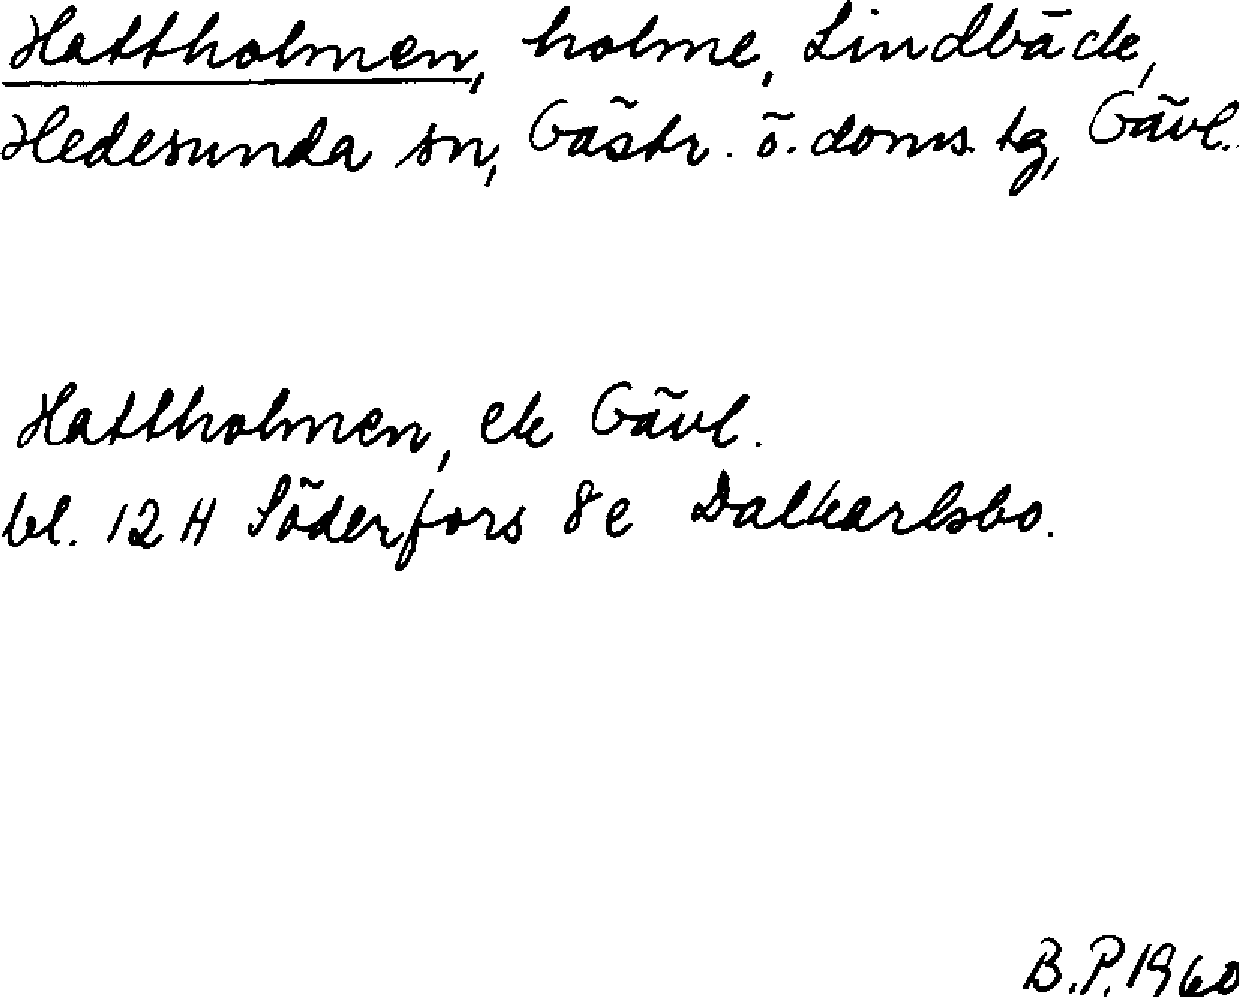 Hattholmen, holme, Lindbäck,
Hedesunda sn, Gästr. ö. doms. tg, Gävl.
Hattholmen, ek Gävl.
bl. 12 H Söderfors 8 e Dalkarlsbo.
B.P. 1960